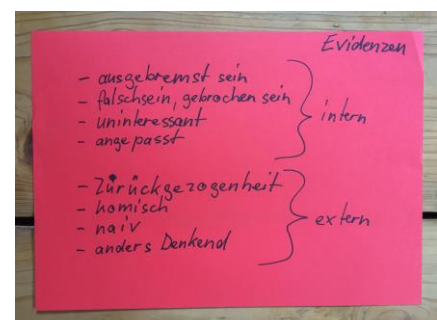 Evidenzen
- ausgebremst sein
- falschsein, gebrochen sein
- uninteressant
- angepasst
intern
- Zurückgezogenheit
- komisch
- naiv
- anders Denkend
extern